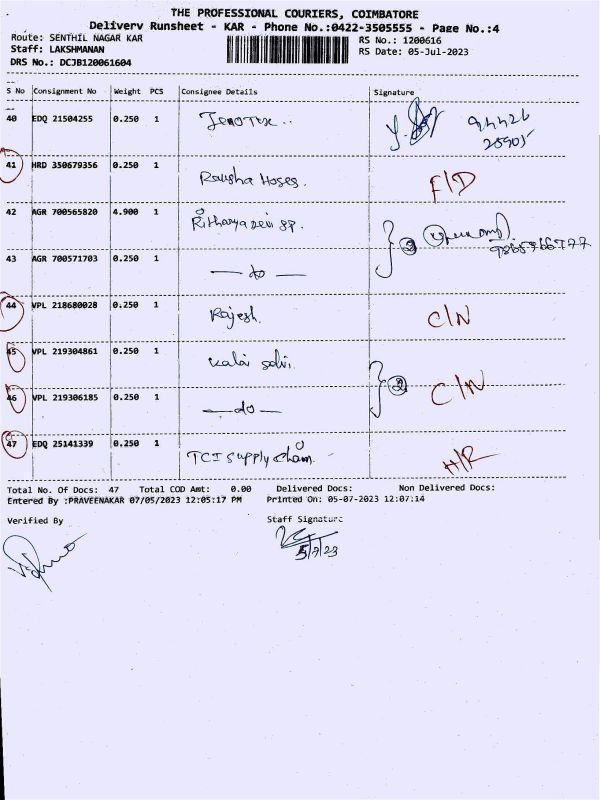 THE PROFESSIONAL COURIERS, COIMBATORE
Delivery Runsheet - KAR - Phone No.:0422-3505555 - Page No.:4
Route: SENTHIL NAGAR KAR RS No.: 1200616
Staff: LAKSHMANAN RS Date: 05-Jul-2023
DRS No.: DCJB120061604
S No Consignment No Weight PCS Consignee Details Signature
40 EDQ 21504255 0.250 1
94426
41 HRD 350679356 0.250 1
Raksha Hoses. F/D
42 AGR 700565820 4.900 1
43 AGR 700571703 0.250 1
— do —
44 VPL 218680028 0.250 1
Rajesh. C/N
45 VPL 219304861 0.250 1
Kalai selvi.
46 VPL 219306185 0.250 1 C/N
— do —
47 EDQ 25141339 0.250 1
TCI supply chain H/R
Total No. Of Docs: 47 Total COD Amt: 0.00 Delivered Docs: Non Delivered Docs:
Entered By :PRAVEENAKAR 07/05/2023 12:05:17 PM Printed On: 05-07-2023 12:07:14
Verified By Staff Signature
5/7/23